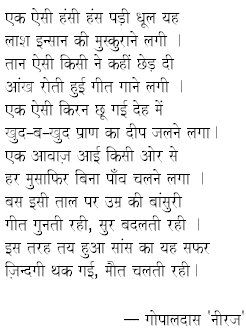 एक ऐसी हंसी हंस पड़ी धूल यह
लाश इन्सान की मुस्कुराने लगी ।
तान ऐसी किसी ने कहीं छेड़ दी
आंख रोती हुई गीत गाने लगी ।
एक ऐसी किरन छू गई देह में
खुद-ब-खुद प्राण का दीप जलने लगा।
एक आवाज़ आई किसी ओर से
हर मुसाफिर बिना पाँव चलने लगा ।
बस इसी ताल पर उम्र की बांसुरी
गीत गुनती रही, सुर बदलती रही ।
इस तरह तय हुआ सांस का यह सफर
ज़िन्दगी थक गई, मौत चलती रही।
— गोपालदास 'नीरज'